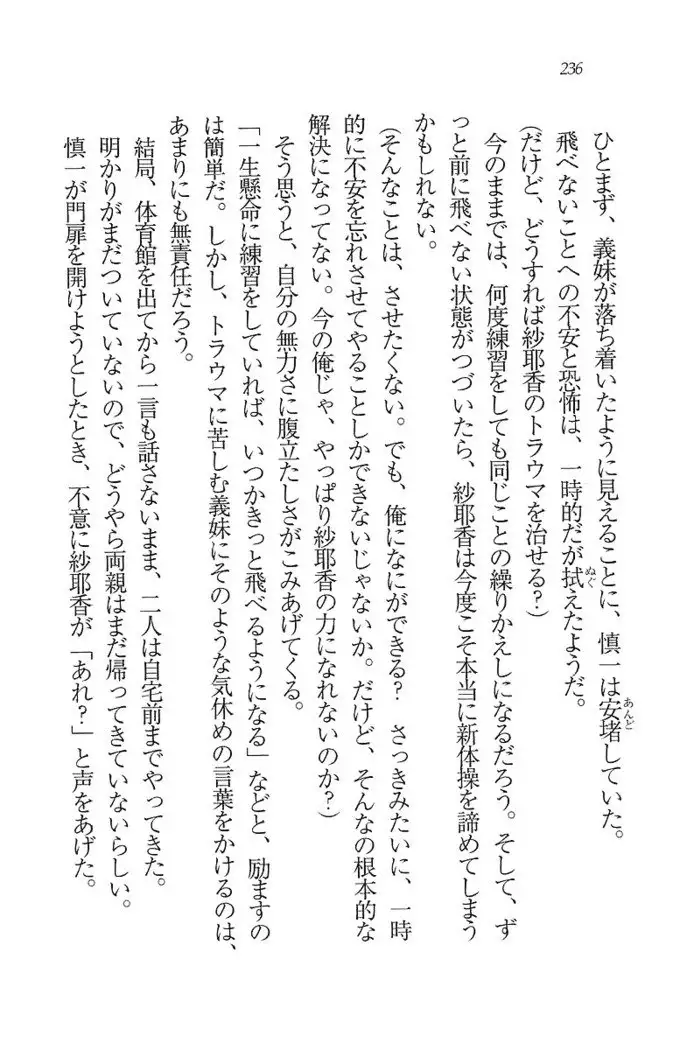 236
ひとまず、義妹が落ち着いたように見えることに、慎一は安堵していた。
飛べないことへの不安と恐怖は、一時的だが拭えたようだ。
(だけど、どうすれば紗耶香のトラウマを治せる?)
今のままでは、何度練習をしても同じことの繰りかえしになるだろう。そして、ず
っと前に飛べない状態がつづいたら、紗耶香は今度こそ本当に新体操を諦めてしまう
かもしれない。
(そんなことは、させたくない。でも、俺になにができる? さっきみたいに、一時
的に不安を忘れさせてやることしかできないじゃないか。だけど、そんなの根本的な
解決になってない。今の俺じゃ、やっぱり紗耶香の力になれないのか?)
そう思うと、自分の無力さに腹立たしさがこみあげてくる。
「一生懸命に練習をしていれば、いつかきっと飛べるようになる」などと、励ますの
は簡単だ。しかし、トラウマに苦しむ義妹にそのような気休めの言葉をかけるのは、
あまりにも無責任だろう。
結局、体育館を出てから一言も話さないまま、二人は自宅前までやってきた。
明かりがまだついていないので、どうやら両親はまだ帰ってきていないらしい。
慎一が門扉を開けようとしたとき、不意に紗耶香が「あれ?」と声をあげた。